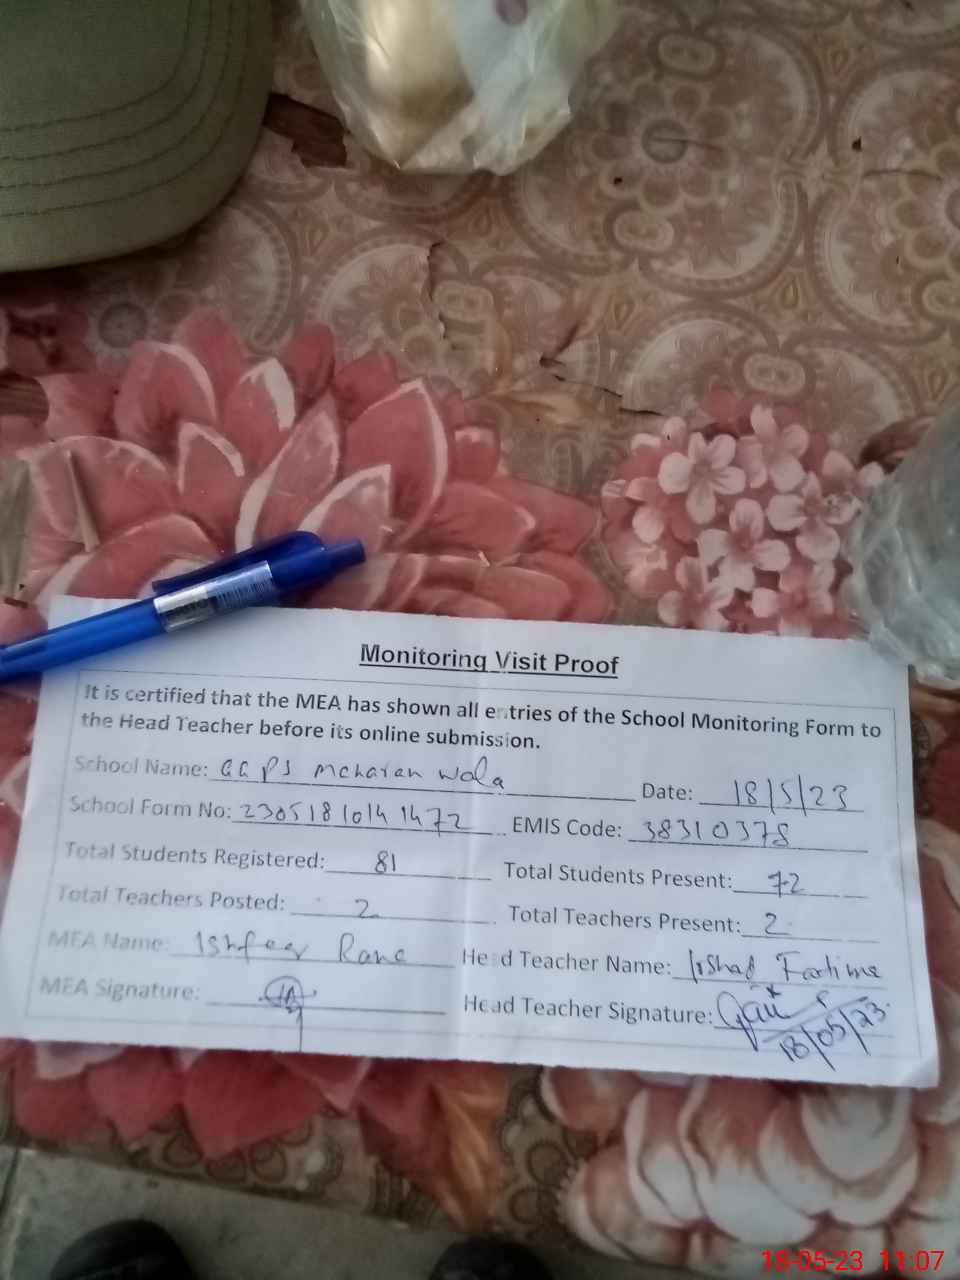 Monitoring Visit Proof
It is certified that the MEA has shown all entries of the School Monitoring Form to
the Head Teacher before its online submission.
School Name: GGPS Meharan Wala Date: 18/5/23
School Form No: 23051810141472 EMIS Code: 38310378
Total Students Registered: 81 Total Students Present: 72
Total Teachers Posted: 2 Total Teachers Present: 2
MEA Name: Ishfaq Rana Head Teacher Name: Irshad Fatima
MEA Signature: Head Teacher Signature:
18/05/23
18-05-23 11:07